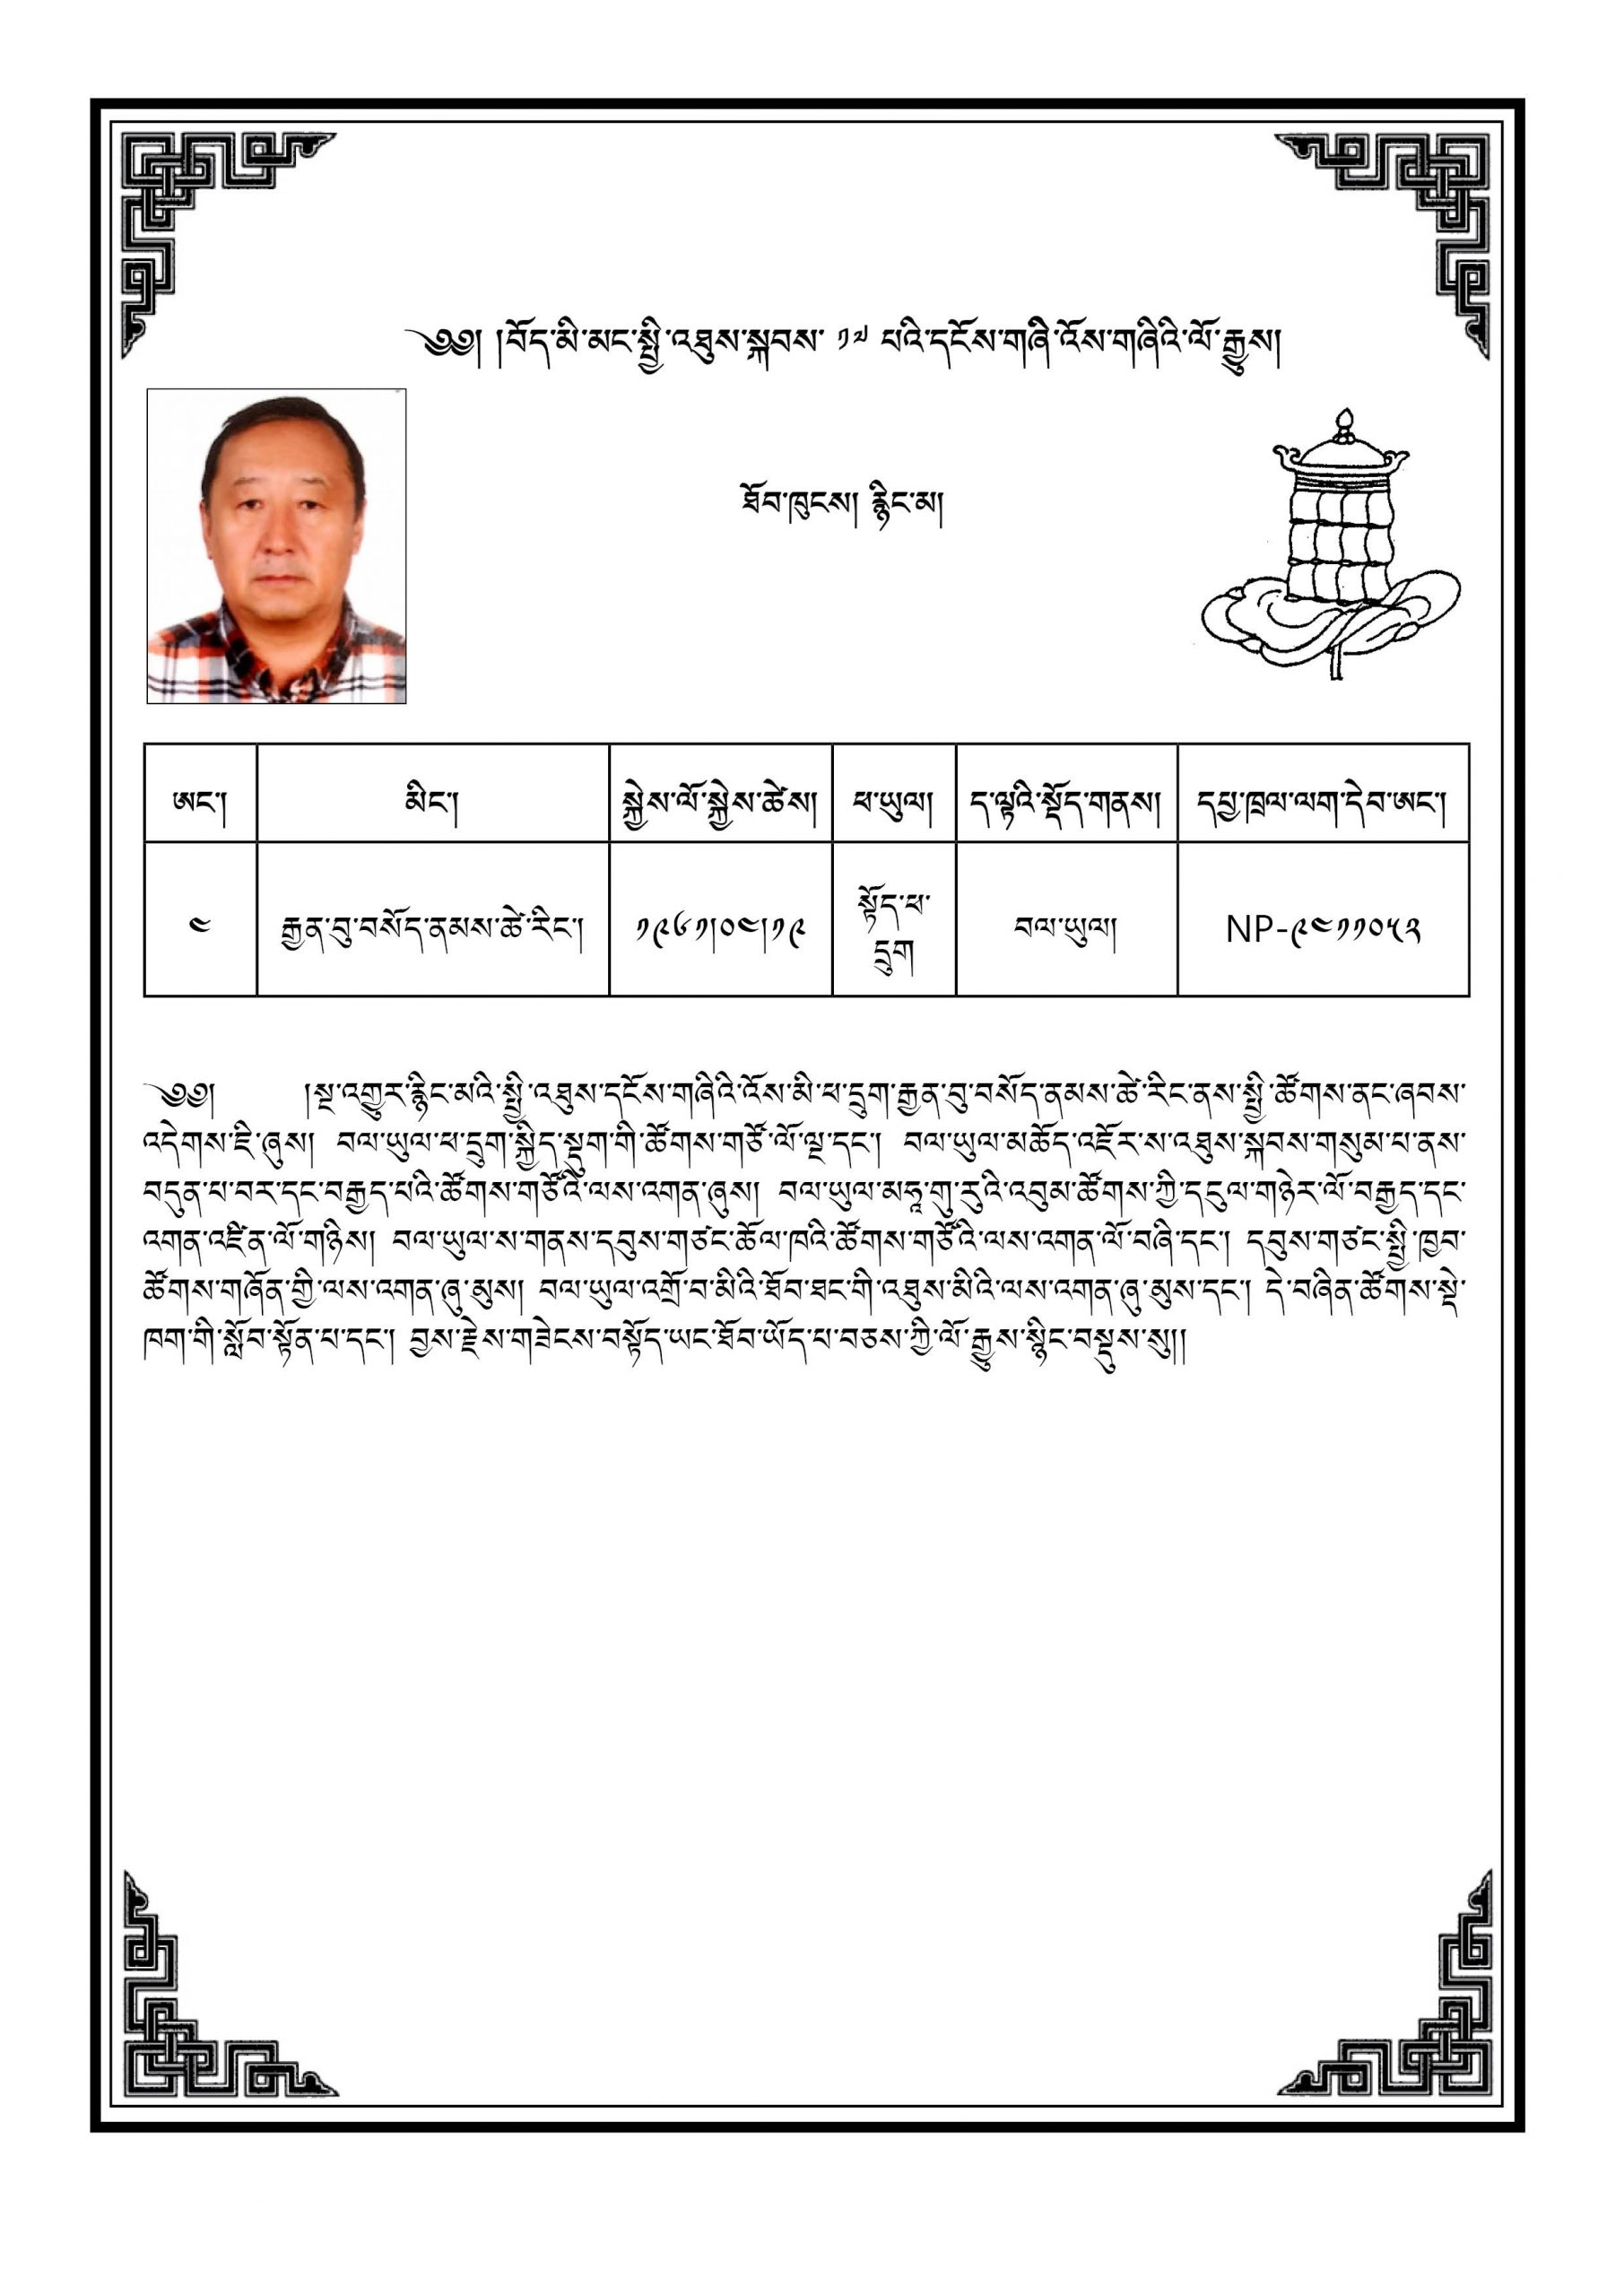 ༄༅། །བོད་མི་མང་སྤྱི་འཐུས་སྐབས་ ༡༧ པའི་དངོས་གཞི་འོས་གཞིའི་ལོ་རྒྱུས།
ཐོབ་ཁུངས། རྙིང་མ།
ཨང་། མིང་། སྐྱེས་ལོ་སྐྱེས་ཚེས། ཕ་ཡུལ། ད་ལྟའི་སྡོད་གནས། དཔྱ་ཁྲལ་ལག་དེབ་ཨང་།
༤ རྒྱན་བུ་བསོད་ནམས་ཚེ་རིང་། ༡༩༦༡།༠༤།༡༩ སྟོད་ཕ་
དྲུག བལ་ཡུལ། NP-༩༤༡༡༠༥༢
༄༅། །སྔ་འགྱུར་རྙིང་མའི་སྤྱི་འཐུས་དངོས་གཞིའི་འོས་མི་ཕ་དྲུག་རྒྱན་བུ་བསོད་ནམས་ཚེ་རིང་ནས་སྤྱི་ཚོགས་ནང་ཞབས་
འདེགས་ཇི་ཞུས། བལ་ཡུལ་ཕ་དྲུག་སྐྱིད་སྡུག་གི་ཚོགས་གཙོ་ལོ་ལྔ་དང་། བལ་ཡུལ་མཆོད་འཇོར་ས་འཐུས་སྐབས་གསུམ་པ་ནས་
བདུན་པ་བར་དང་བརྒྱད་པའི་ཚོགས་གཙོའི་ལས་འགན་ཞུས། བལ་ཡུལ་མཧཱ་གུ་རུའི་འབུམ་ཚོགས་ཀྱི་དངུལ་གཉེར་ལོ་བརྒྱད་དང་
འགན་འཛིན་ལོ་གཉིས། བལ་ཡུལ་ས་གནས་དབུས་གཙང་ཆོལ་ཁའི་ཚོགས་གཙོའི་ལས་འགན་ལོ་བཞི་དང་། དབུས་གཙང་སྤྱི་ཁྱབ་
ཚོགས་གཞོན་གྱི་ལས་འགན་ཞུ་མུས། བལ་ཡུལ་འགྲོ་བ་མིའི་ཐོབ་ཐང་གི་འཐུས་མིའི་ལས་འགན་ཞུ་མུས་དང་། དེ་བཞིན་ཚོགས་སྡེ་
ཁག་གི་སློབ་སྟོན་པ་དང་། བྱས་རྗེས་གཟེངས་བསྟོད་ཡང་ཐོབ་ཡོད་པ་བཅས་ཀྱི་ལོ་རྒྱུས་སྙིང་བསྡུས་སུ།།